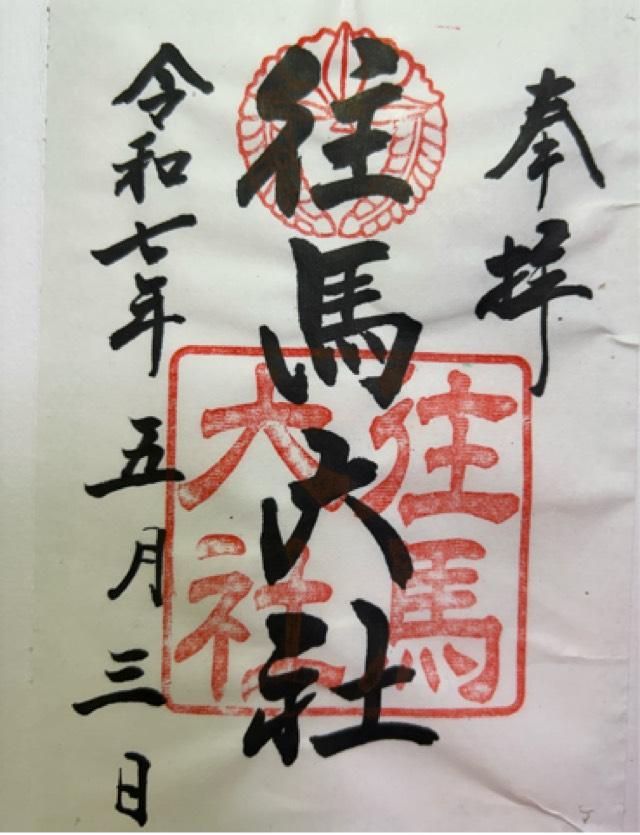 奉拝
往馬大社
往馬
大社
令和七年五月三日